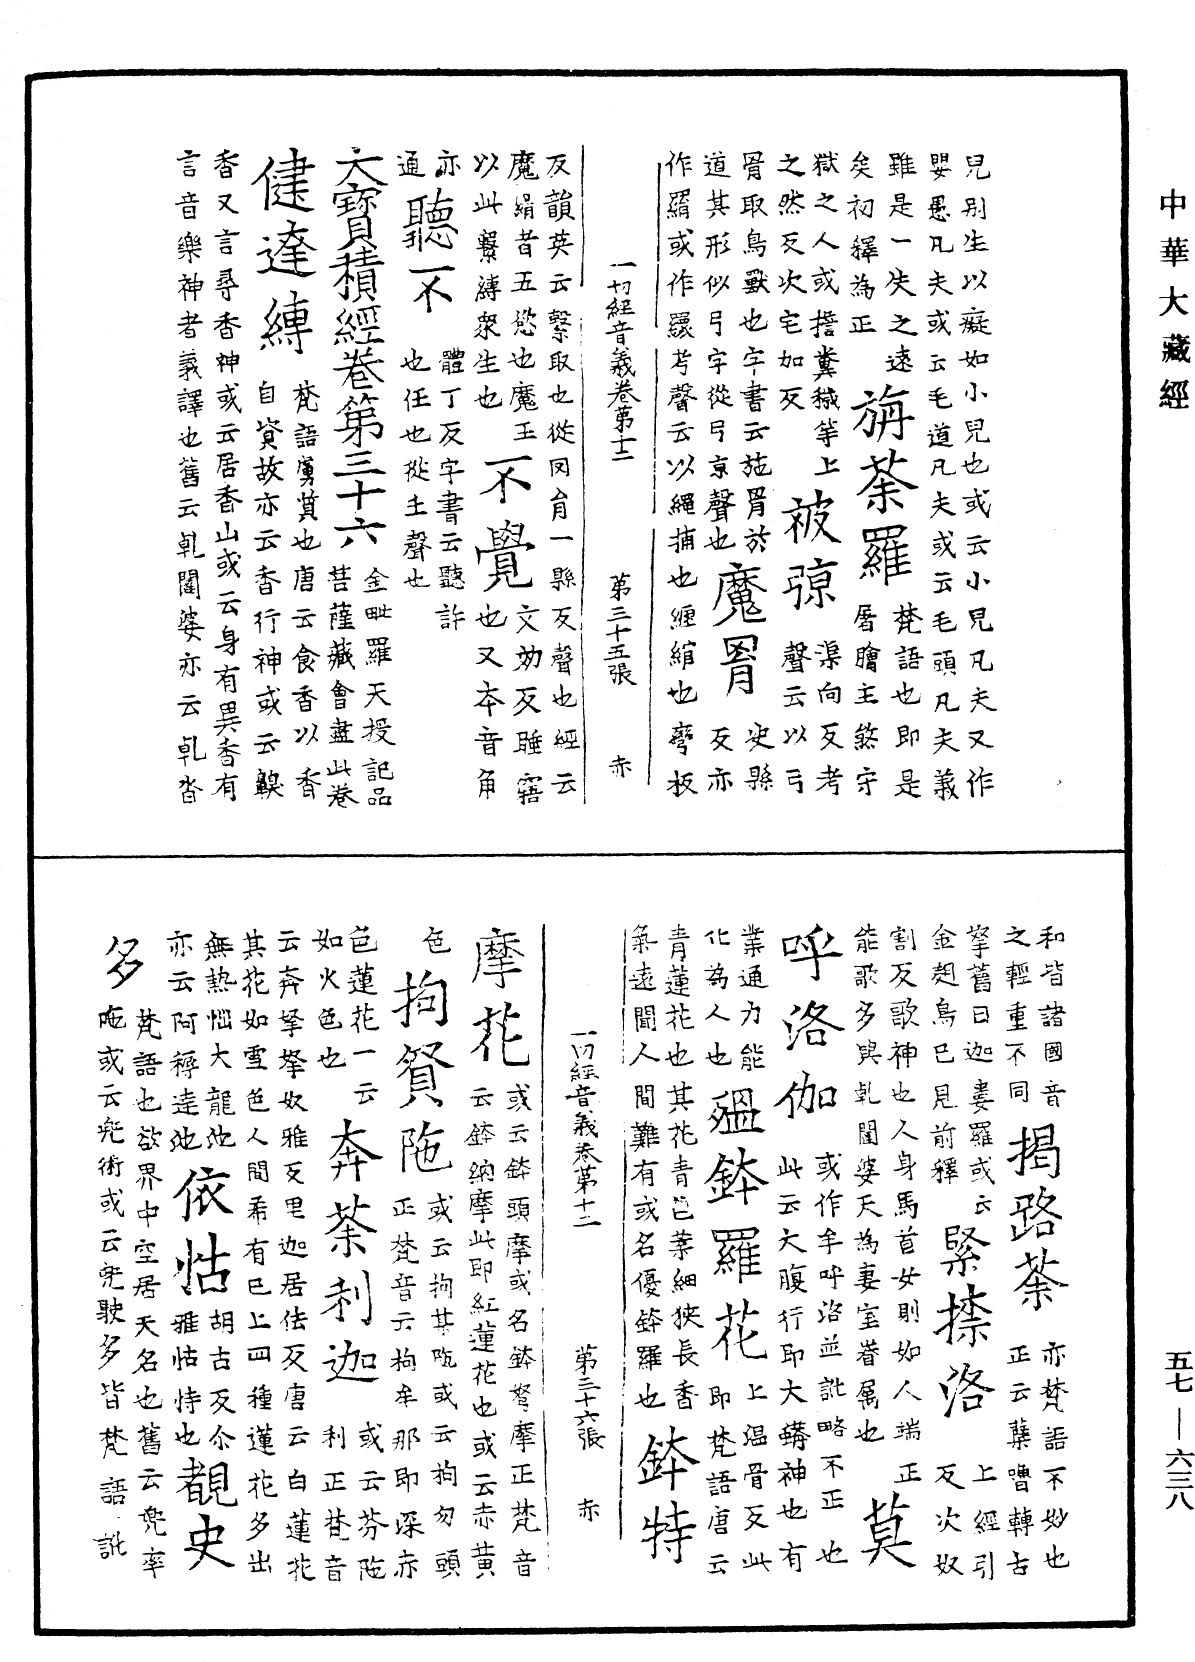 中華大藏經
兒别生以癡如小兒也或云小兒凡夫又作
嬰愚凡夫或云毛道凡夫或云毛頭凡夫義
雖是一失之遠
矣初釋為正
旃荼羅
梵語也即是
屠膾主煞守
獄之人或擔糞穢等上
之然反次宅加反
被弶
渠向反考
聲云以弓
骨取鳥獸也字書云施罥於
道其形似弓字從弓京聲也
魔罥
決縣
反亦
作羂或作繯考聲云以繩捕也纏綰也彎板
一切經音義卷第十二 第三十五張 赤
反韻英云繫取也從罔肙一縣反聲也經云
魔羂者五慾也魔王
以此羂縛眾生也
不覺
文効反睡寤
也又本音角
亦
通
聽不
體丁反字書云聽許
也任也從壬聲也
大寶積經卷第三十六
金毗羅天授記品
菩薩藏會盡此卷
健達縛
梵語虜質也唐云食香以香
自資故亦云香行神或云齅
香又言尋香神或云居香山或云身有異香有
言音樂神者義譯也舊云乹闥婆亦云乹沓
和皆諸國音
之輕重不同
揭路荼
亦梵語不妙也
正云蘖嚕轉古
拏舊曰迦婁羅或云
金翅鳥已見前釋
緊捺洛
上經引
反次奴
割反歌神也人身馬首女則如人端正
能歌多與乹闥婆天為妻室眷属也
莫
呼洛伽
或作牟呼洛並訛略不正也
此云大腹行即大蟒神也有
業通力能
化為人也
殟鉢羅花
上温骨反此
即梵語唐云
青蓮花也其花青色葉細狹長香
氣遠聞人間難有或名優鉢羅也
鉢特
一切經音義卷第十二 第三十六張 赤
摩花
或云鉢頭摩或名鉢弩摩正梵音
云鉢納摩此即紅蓮花也或云赤黄
色
拘貿陁
或云拘某陁或云拘勿頭
正梵音云拘牟那即深赤
色蓮花一云
如火色也
奔荼利迦
或云芬陁
利正梵音
云奔拏拏奴雅反里迦居佉反唐云白蓮花
其花如雪色人間希有已上四種蓮花多出
無熱惱大龍池
亦云阿耨達池
依怙
胡古反尒
雅怙恃也
覩史
多
梵語也欲界中空居天名也舊云兜率
陁或云兠術或云兜駛多皆梵語訛
五七—六三八